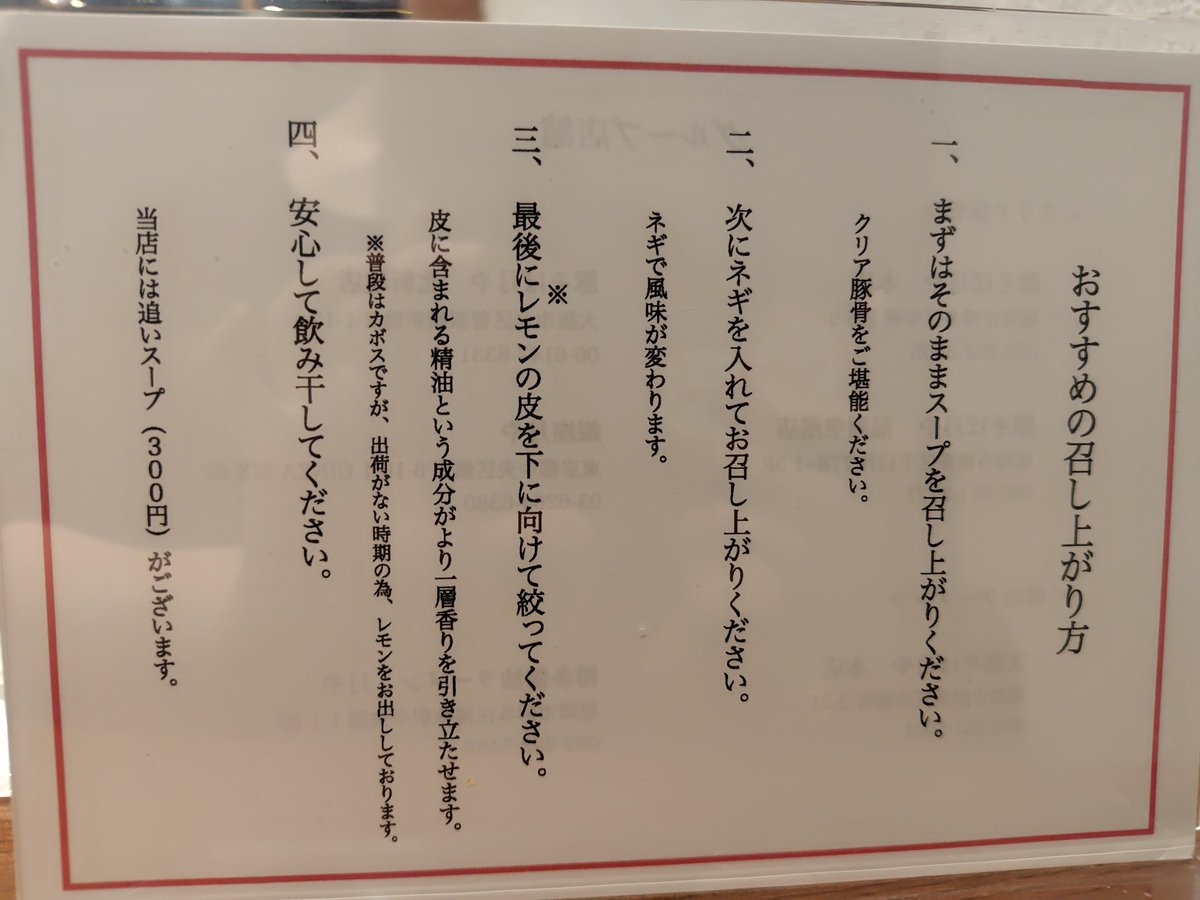 おすすめの召し上がり方
一、まずはそのままスープを召し上がりください。
クリア豚骨をご堪能ください。
二、次にネギを入れてお召し上がりください。
ネギで風味が変わります。
三、最後にレモン※の皮を下に向けて絞ってください。
皮に含まれる精油という成分がより一層香りを引き立たせます。
※普段はカボスですが、出荷がない時期の為、レモンをお出ししております。
四、安心して飲み干してください。
当店には追いスープ（300円）がございます。